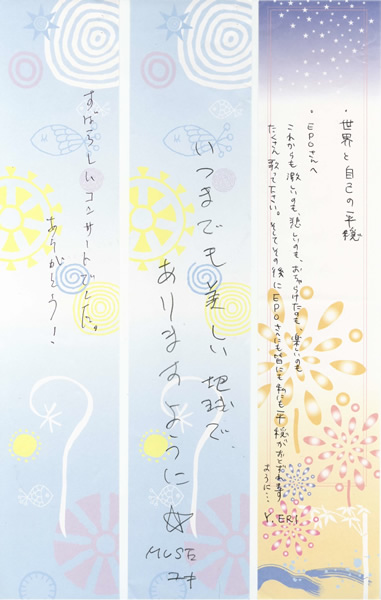 ・世界と自己の平穏
・EPOさんへ
これからも激しいのも、悲しいのも、おちゃらけたのも、楽しいのも
たくさん歌って下さい。そしてその後にEPOさんにも皆にも私にも平穏がおとずれます
ように…
Y. ERI
いつまでも美しい地球で
ありますように☆
MUSE
ユキ
すばらしいコンサートでした。
ありがとう!